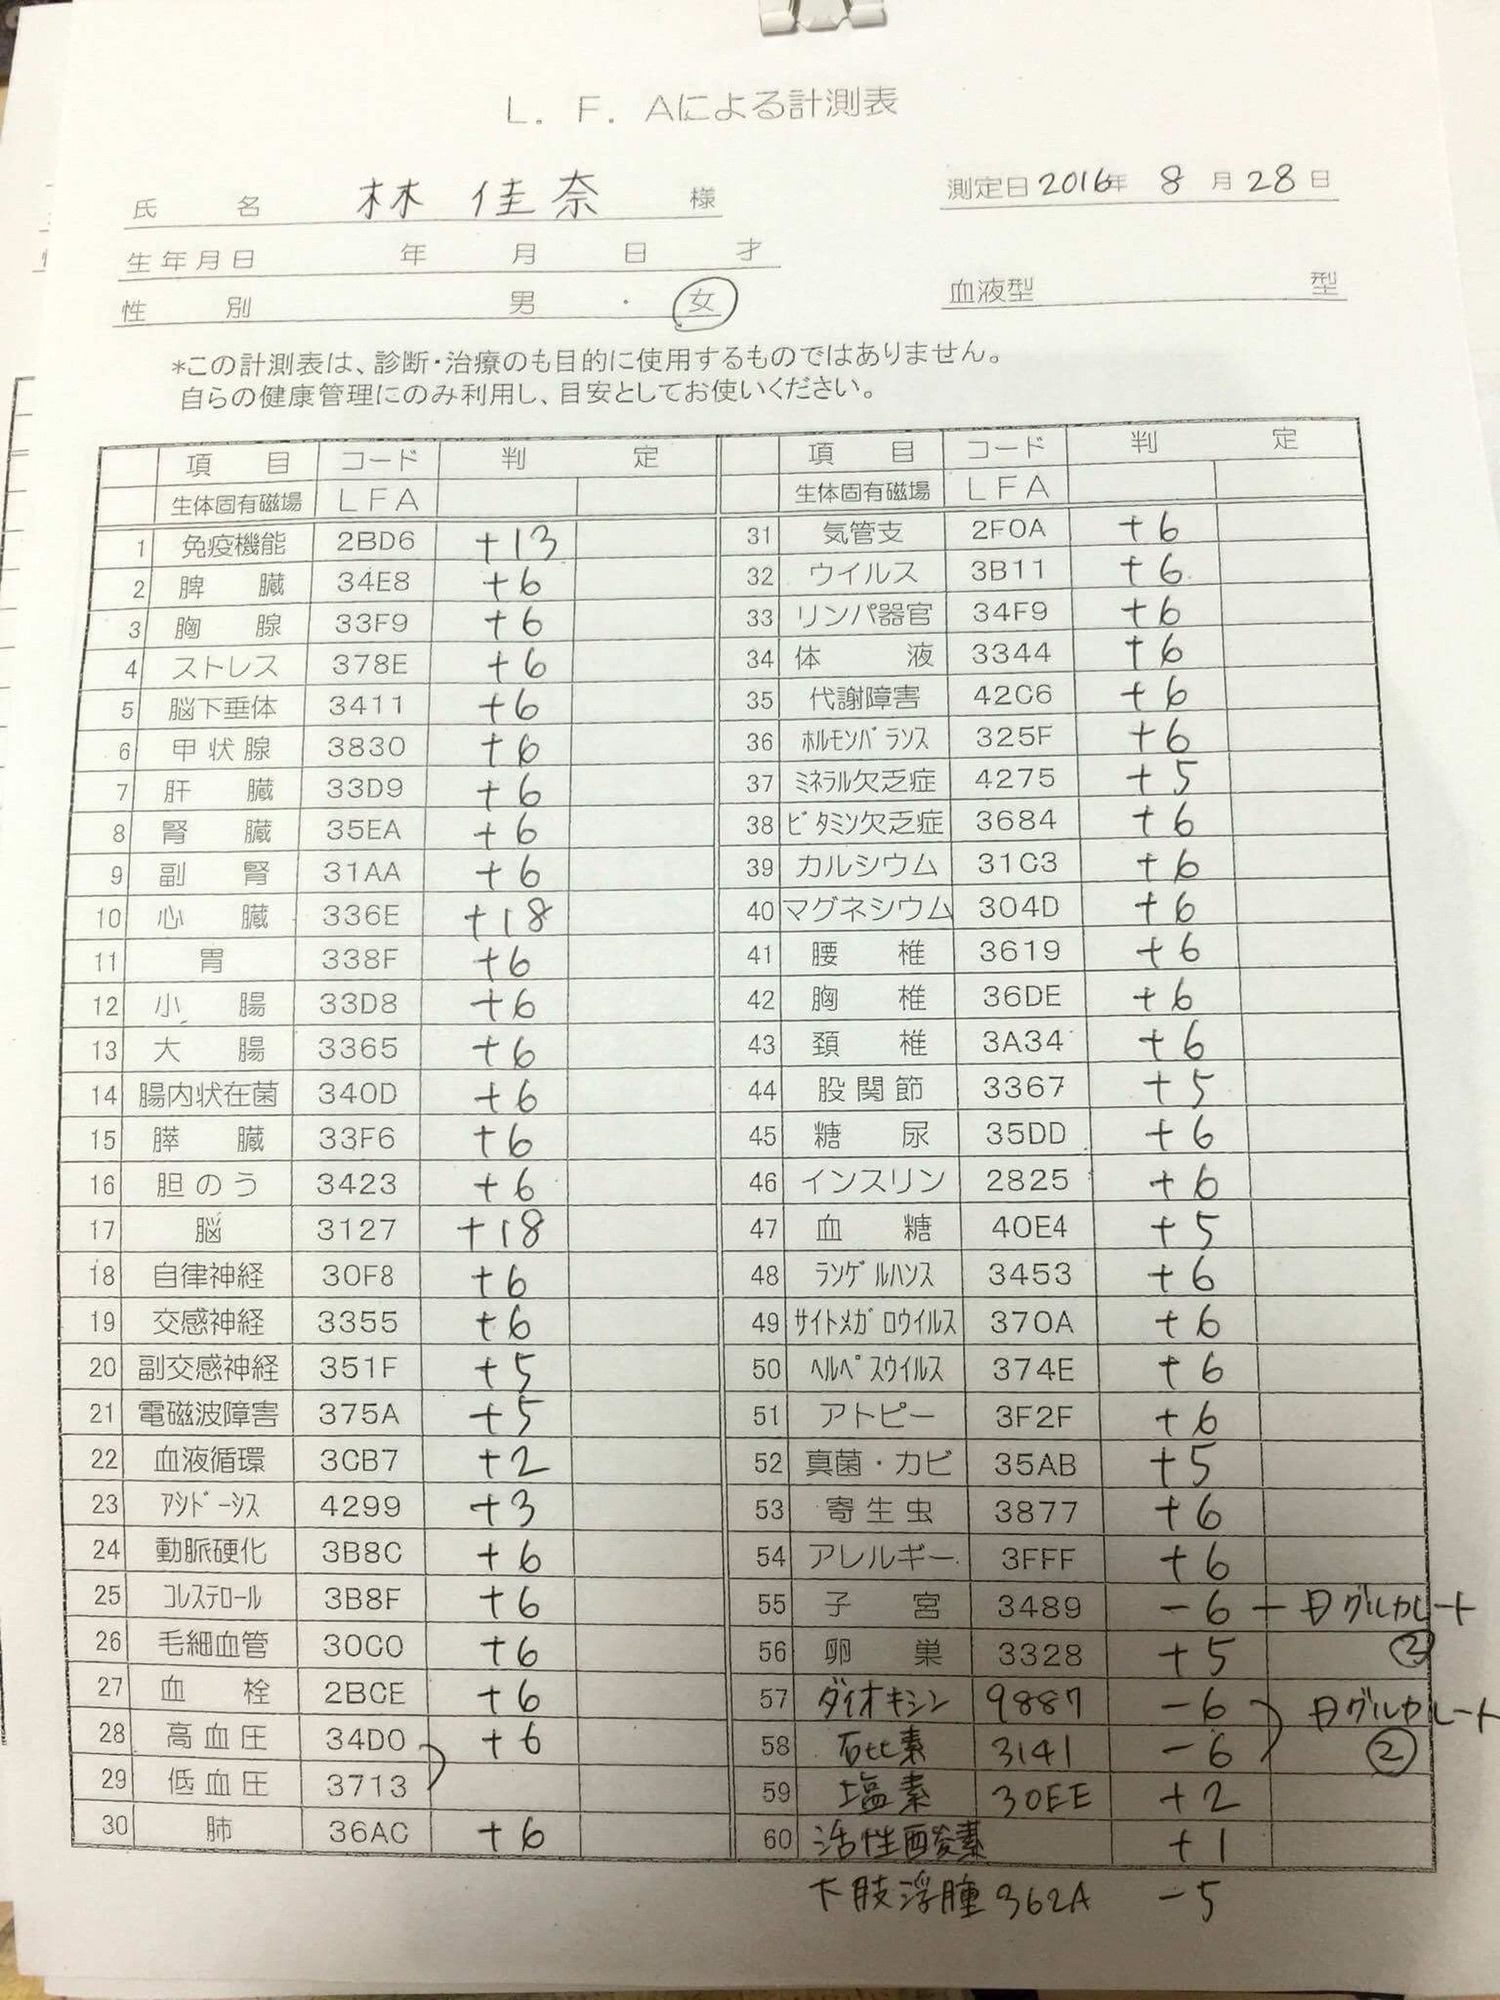 L．F．Aによる計測表
氏名 林 佳奈 様
測定日2016年 8月28日
生年月日 年 月 日 才
性別 男・女
血液型 型
*この計測表は、診断・治療のも目的に使用するものではありません。
自らの健康管理にのみ利用し、目安としてお使いください。
項目 コード 判定 項目 コード 判定
生体固有磁場 LFA 生体固有磁場 LFA
1 免疫機能 2BD6 +13 31 気管支 2F0A +6
2 脾臓 34E8 +6 32 ウイルス 3B11 +6
3 胸腺 33F9 +6 33 リンパ器官 34F9 +6
4 ストレス 378E +6 34 体液 3344 +6
5 脳下垂体 3411 +6 35 代謝障害 42C6 +6
6 甲状腺 3830 +6 36 ﾎﾙﾓﾝﾊﾞﾗﾝｽ 325F +6
7 肝臓 33D9 +6 37 ﾐﾈﾗﾙ欠乏症 4275 +5
8 腎臓 35EA +6 38 ﾋﾞﾀﾐﾝ欠乏症 3684 +6
9 副腎 31AA +6 39 カルシウム 31C3 +6
10 心臓 336E +18 40 マグネシウム 304D +6
11 胃 338F +6 41 腰椎 3619 +6
12 小腸 33D8 +6 42 胸椎 36DE +6
13 大腸 3365 +6 43 頚椎 3A34 +6
14 腸内状在菌 340D +6 44 股関節 3367 +5
15 膵臓 33F6 +6 45 糖尿 35DD +6
16 胆のう 3423 +6 46 インスリン 2825 +6
17 脳 3127 +18 47 血糖 40E4 +5
18 自律神経 30F8 +6 48 ﾗﾝｹﾞﾙﾊﾝｽ 3453 +6
19 交感神経 3355 +6 49 ｻｲﾄﾒｶﾞﾛｳｲﾙｽ 370A +6
20 副交感神経 351F +5 50 ﾍﾙﾍﾟｽｳｲﾙｽ 374E +6
21 電磁波障害 375A +5 51 アトピー 3F2F +6
22 血液循環 3CB7 +2 52 真菌・カビ 35AB +5
23 ｱｼﾄﾞｰｼｽ 4299 +3 53 寄生虫 3877 +6
24 動脈硬化 3B8C +6 54 アレルギー 3FFF +6
25 ｺﾚｽﾃﾛｰﾙ 3B8F +6 55 子宮 3489 -6 日グルカレート
26 毛細血管 30C0 +6 56 卵巣 3328 +5 ②
27 血栓 2BCE +6 57 ダイオキシン 9887 -6 日グルカレート
28 高血圧 34D0 +6 58 石比素 3141 -6 ②
29 低血圧 3713 59 塩素 30EE +2
30 肺 36AC +6 60 活性酸素 +1
下肢浮腫 362A -5